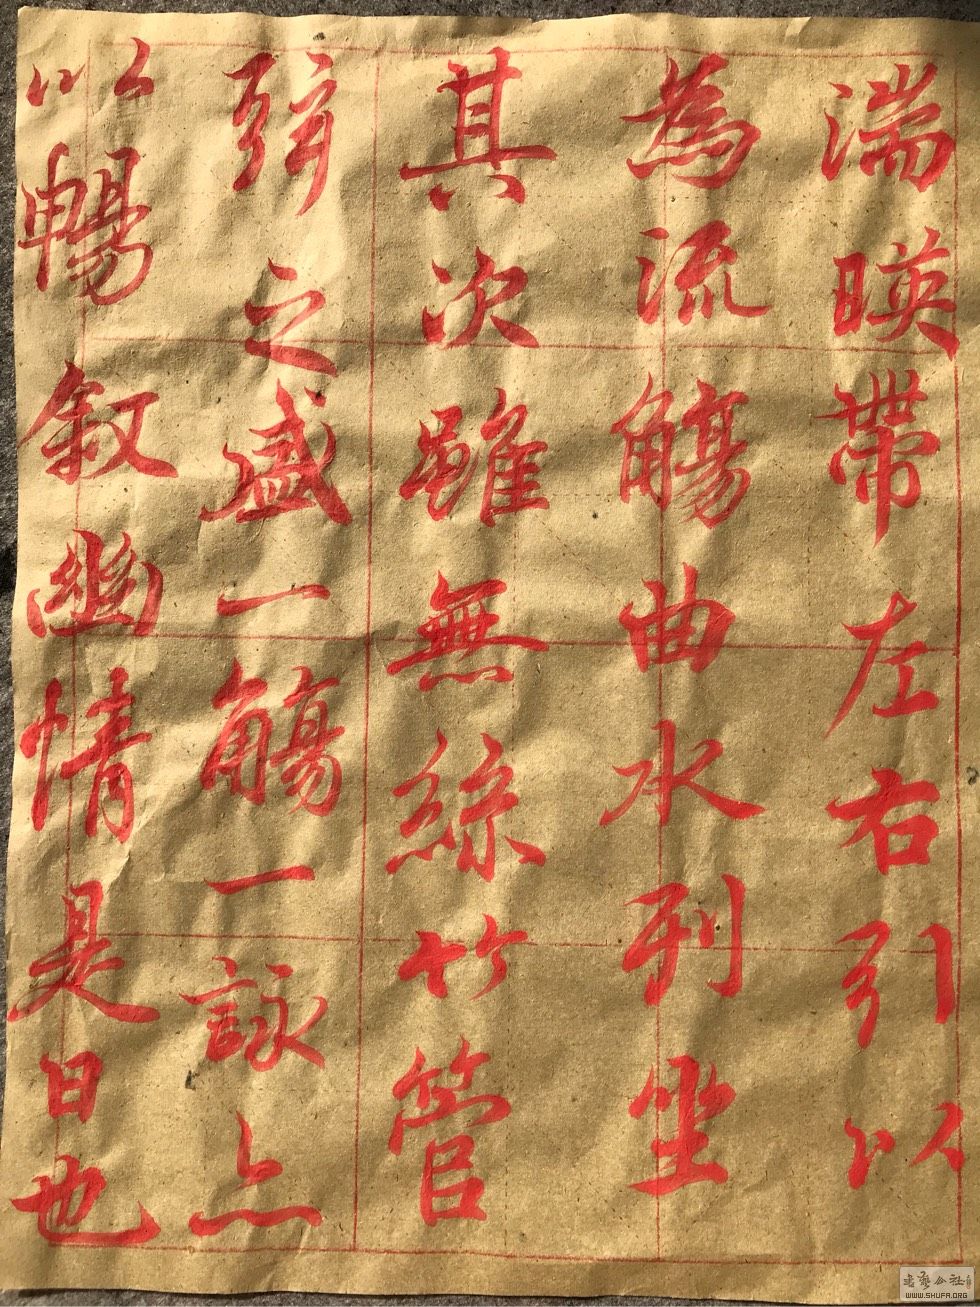 湍暎帶左右引以
為流觴曲水列坐
其次雖無絲竹管
弦之盛一觴一詠亦
以暢叙幽情是日也
書藝公社
WWW.SHUFA.ORG